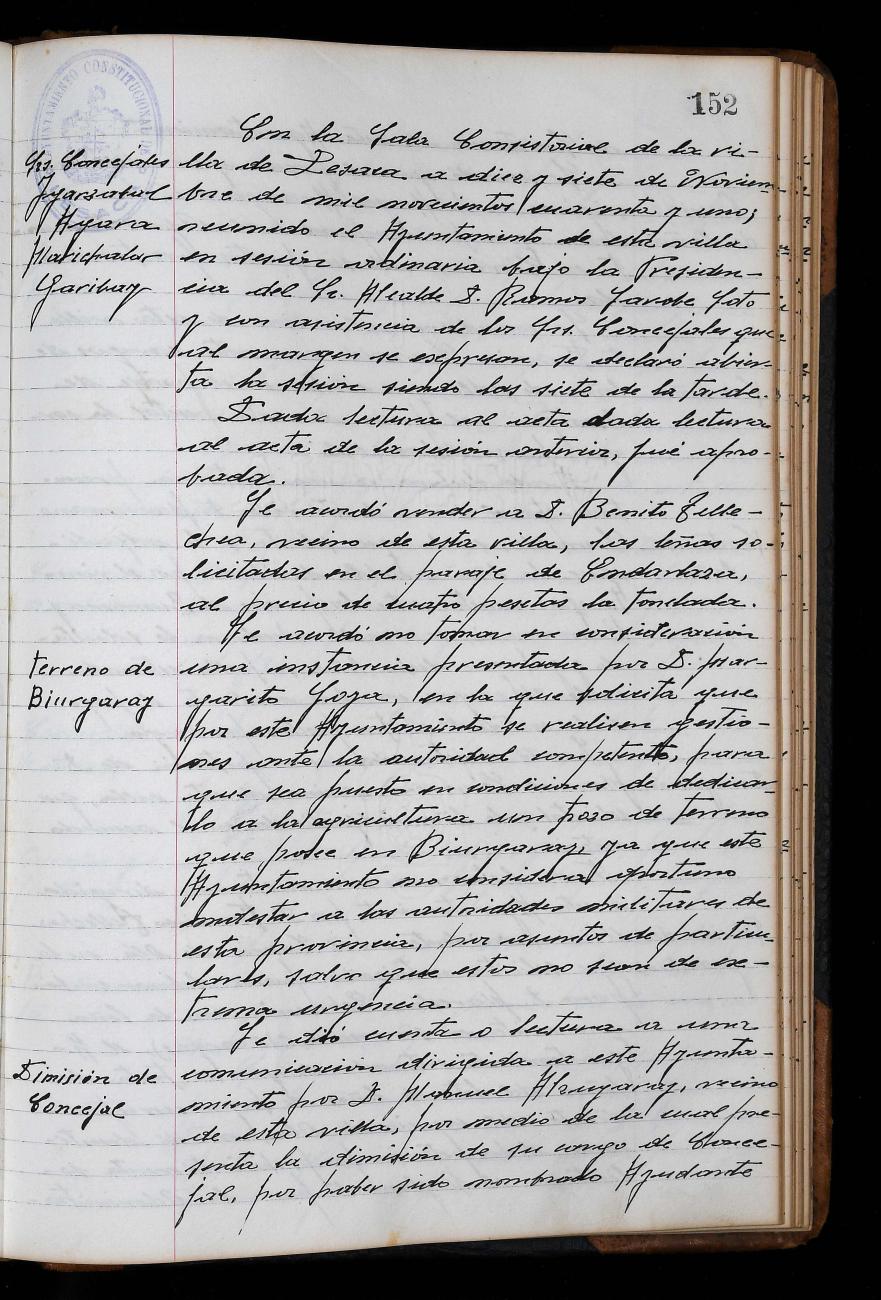 152
AYUNTAMIENTO CONSTITUCIONAL
Srs. Concejales
Ygarzabal
Ayara
Marichalar
Garibay
En la Sala Consistorial de la vi-
lla de Lesaca a diez y siete de Noviem-
bre de mil novecientos cuarenta y uno;
reunido el Ayuntamiento de esta villa
en sesión ordinaria bajo la Presiden-
cia del Sr. Alcalde D. Ramos Sarobe Goto
y con asistencia de los Srs. Concejales que
al margen se expresan, se declaró abier-
ta la sesión siendo las siete de la tarde.
Dada lectura al acta dada lectura
al acta de la sesión anterior, fué apro-
bada.
Se acordó vender a D. Benito Telle-
chea, vecino de esta villa, las leñas so-
licitadas en el paraje de Endarlaza,
al precio de cuatro pesetas la tonelada.
terreno de
Biurgaray
Se acordó no tomar en consideración
una instancia presentada por D. Mar-
garito Goya, en la que solicita que
por este Ayuntamiento se realicen gestio-
nes ante la autoridad competente, para
que sea puesto en condiciones de dedicar-
lo a la agricultura un trozo de terreno
que posee en Biurgaray, ya que este
Ayuntamiento no considera oportuno
molestar a las autoridades militares de
esta provincia, por asuntos de particu-
lares, salvo que estos no sean de ex-
trema urgencia.
Dimisión de
Concejal
Se dió cuenta o lectura a una
comunicacion dirigida a este Ayunta-
miento por D. Manuel Alzugaray, vecino
de esta villa, por medio de la cual pre-
senta la dimisión de su cargo de Conce-
jal, por haber sido nombrado Ayudante